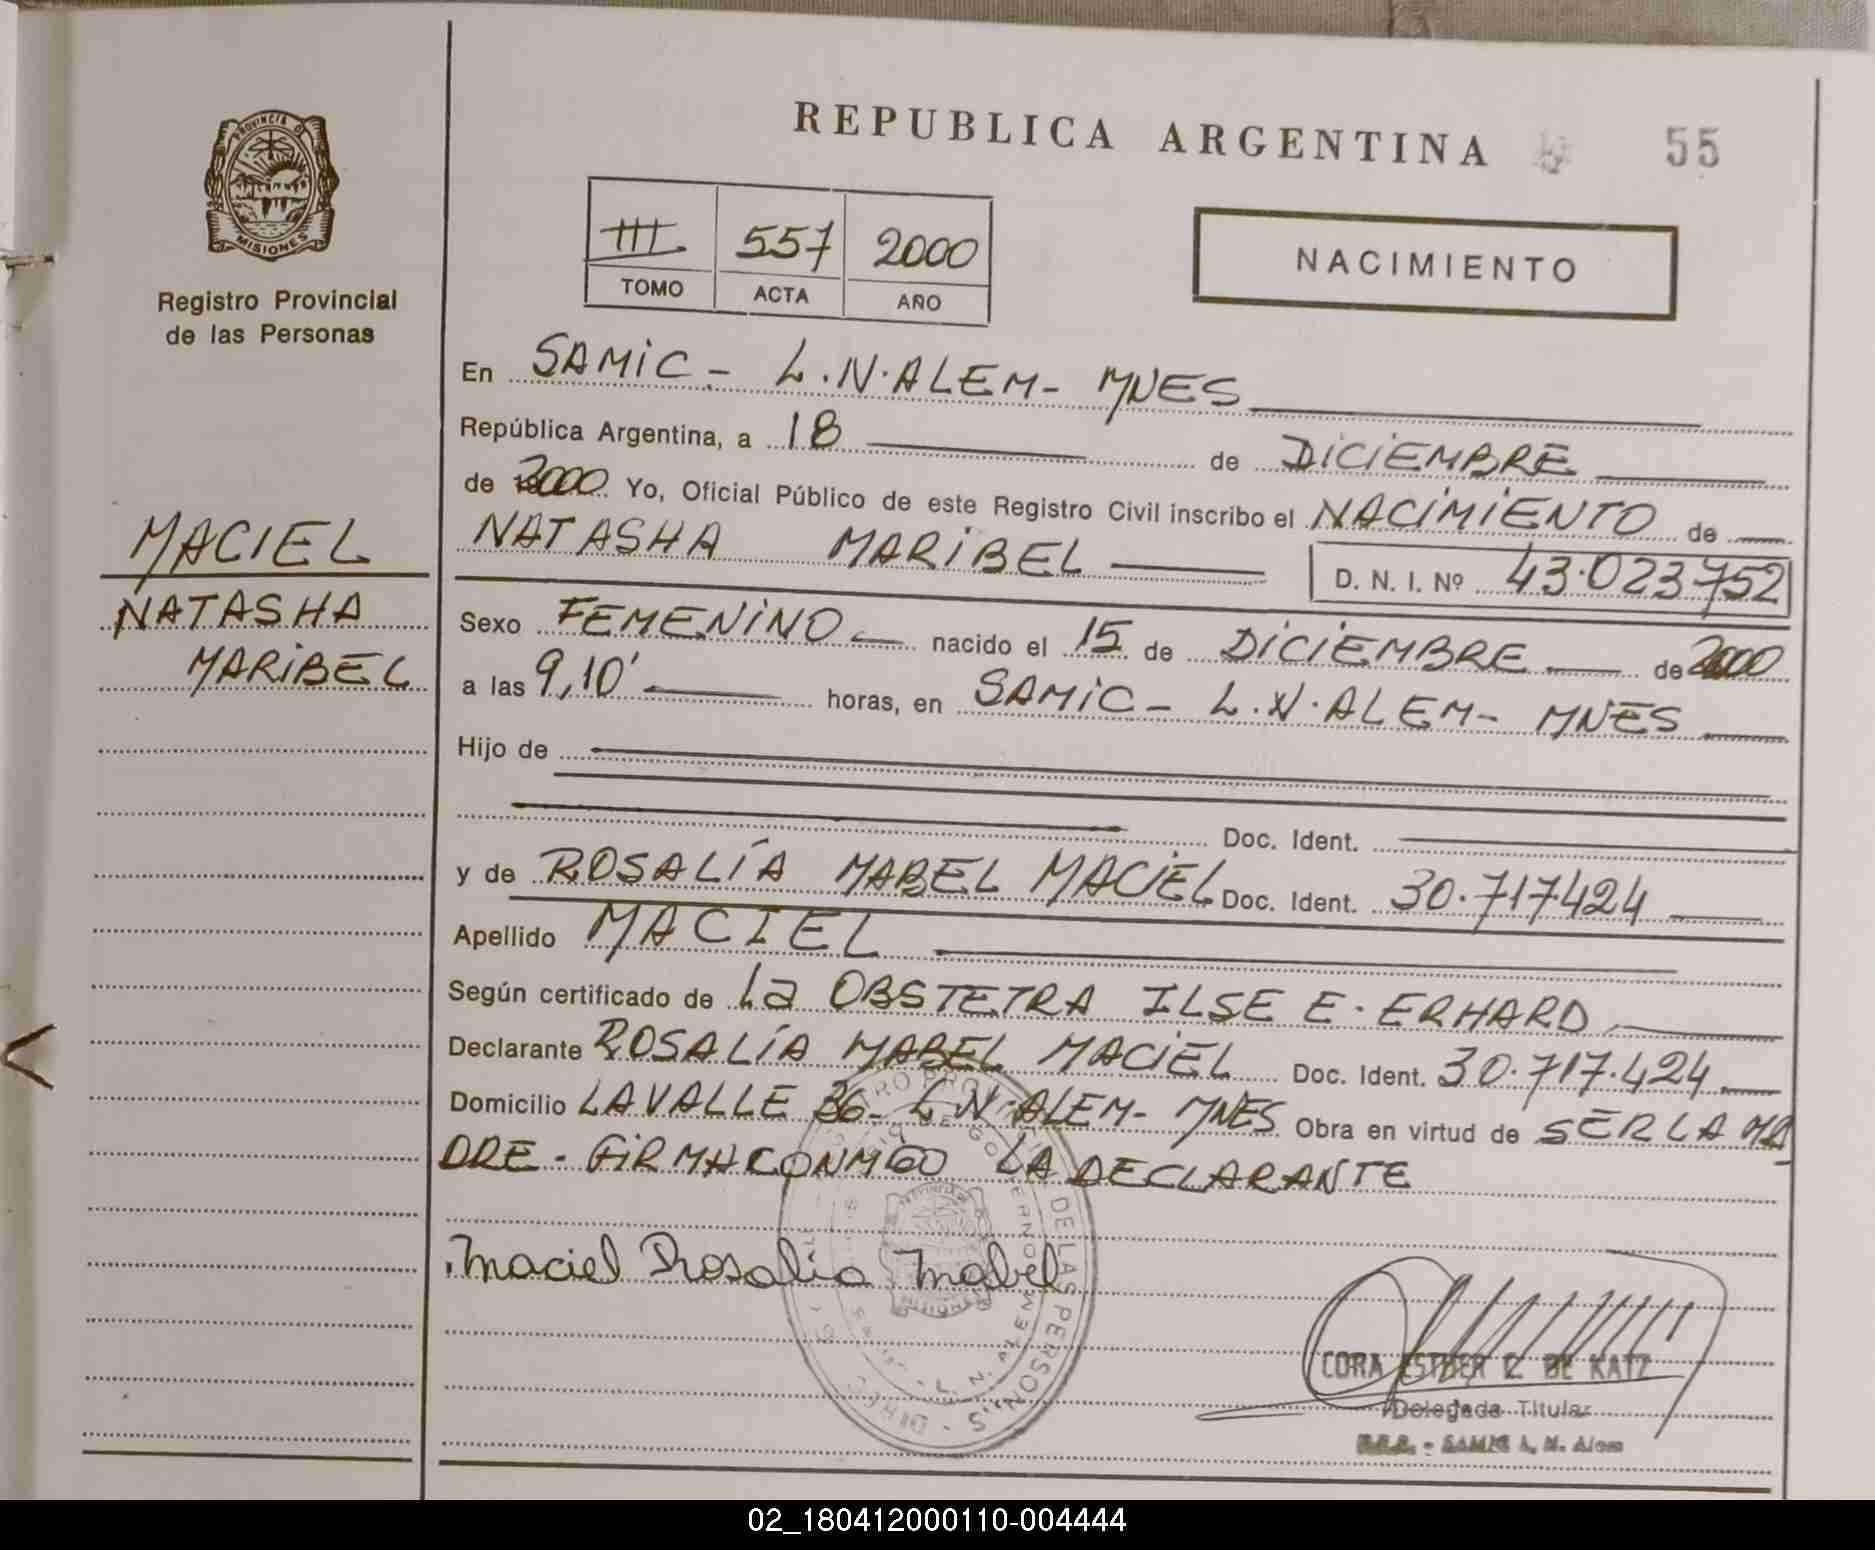 REPUBLICA ARGENTINA
55
PROVINCIA D
MISIONES
Registro Provincial
de las Personas
III 557 2000
TOMO ACTA AÑO
NACIMIENTO
En SAMiC - L.N.ALEM - MNES
República Argentina, a 18 de DiCiEMBRE
de 2000 Yo, Oficial Público de este Registro Civil inscribo el NACiMiENTO de
NATASHA MARiBEL D. N. I. Nº 43.023752
MACIEL
NATASHA
MARiBEL
Sexo FEMENiNO nacido el 15 de DiCiEMBRE de 2000
a las 9,10' horas, en SAMiC - L.N.ALEM - MNES
Hijo de
Doc. Ident.
y de ROSALÍA MABEL MACiEL Doc. Ident. 30.717424
Apellido MACIEL
Según certificado de La OBSTETRA ILSE E. ERHARD
Declarante ROSALÍA MABEL MACiEL Doc. Ident. 30.717.424
Domicilio LAVALLE 36- L N.ALEM- MNES Obra en virtud de SER LA MA
DRE - FiRMA CONMiGO LA DECLARANTE
Maciel Rosalia Mabel
DE LAS PERSONAS
L. N. ALEM
MISIONES
CORA ESTHER Z. DE KATZ
Delegada Titular
SAMIC L. N. Alem
02_180412000110-004444